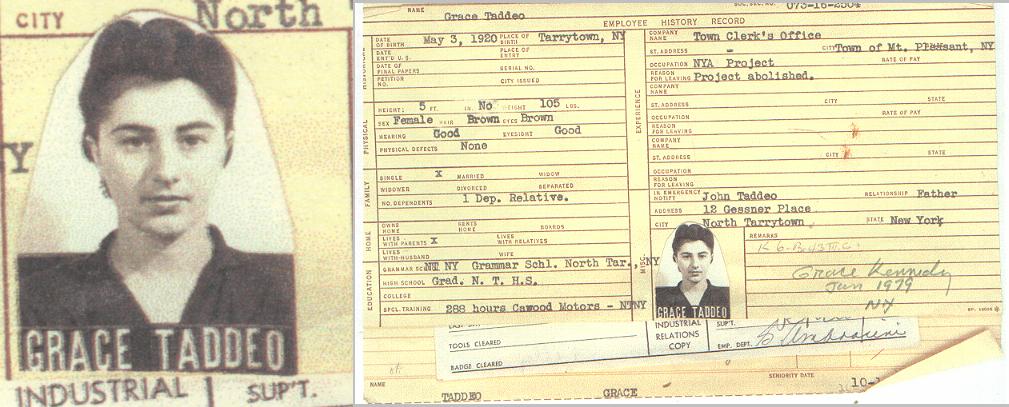 CITY North
Y
GRACE TADDEO
INDUSTRIAL SUP'T.
NAME Grace Taddeo
EMPLOYEE HISTORY RECORD
DATE OF BIRTH May 3, 1920 PLACE OF BIRTH Tarrytown, NY
DATE ENT'D U.S. PLACE OF ENTRY
DATE OF FINAL PAPERS SERIAL NO.
PETITION NO. CITY ISSUED
PHYSICAL
HEIGHT: 5 FT. IN. No WEIGHT 105 LBS.
SEX Female HAIR Brown EYES Brown
HEARING Good EYESIGHT Good
PHYSICAL DEFECTS None
FAMILY
SINGLE X MARRIED WIDOW
WIDOWER DIVORCED SEPARATED
NO. DEPENDENTS 1 Dep. Relative.
HOME
OWNS HOME RENTS HOME BOARDS
LIVES WITH PARENTS X LIVES WITH RELATIVES
LIVES WITH-HUSBAND WIFE
EDUCATION
GRAMMAR NT NY Grammar Schl. North Tar., NY
HIGH SCHOOL Grad. N. T. H.S.
COLLEGE
SPCL. TRAINING 288 hours Cawood Motors - NTNY
EXPERIENCE
COMPANY NAME Town Clerk's Office
ST. ADDRESS - CITY Town of Mt. Pleasant, NY
OCCUPATION NYA Project RATE OF PAY
REASON FOR LEAVING Project abolished.
COMPANY NAME
ST. ADDRESS CITY STATE
OCCUPATION RATE OF PAY
REASON FOR LEAVING
COMPANY NAME
ST. ADDRESS CITY STATE
OCCUPATION
REASON FOR LEAVING
MISC.
IN EMERGENCY NOTIFY John Taddeo RELATIONSHIP Father
ADDRESS 12 Gessner Place
CITY North Tarrytown STATE New York
REMARKS
Grace Kennedy
Jan 1979
NY
GRACE TADDEO
TOOLS CLEARED
BADGE CLEARED
INDUSTRIAL RELATIONS COPY
SUP'T.
EMP. DEPT.
SENIORITY DATE
10-
NAME TADDEO GRACE